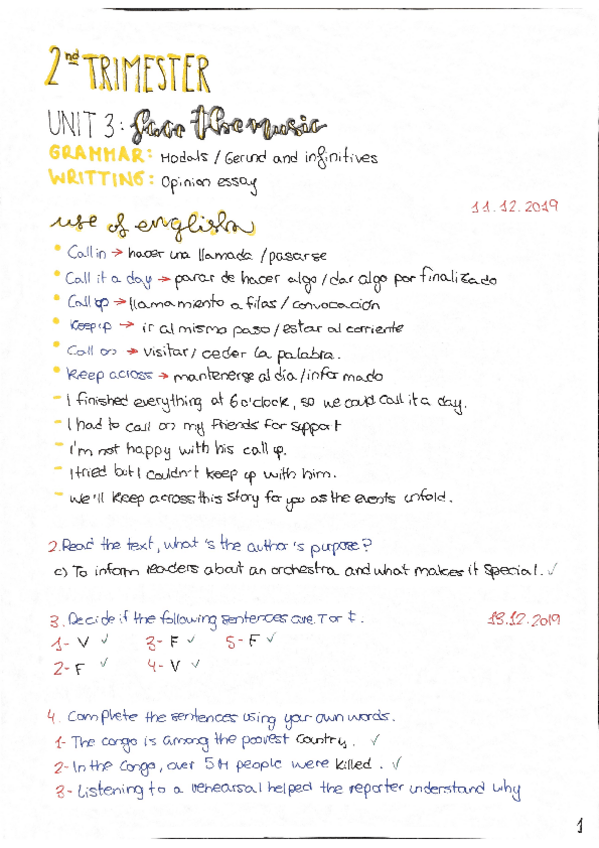 2nd TRIMESTER
UNIT 3: face the music
GRAMMAR: Modals / Gerund and infinitives
WRITTING: Opinion essay
11.12.2019
use of english
• Call in → hacer una llamada / pasarse
• Call it a day → parar de hacer algo / dar algo por finalizado
• Call up → llamamiento a filas / convocación
• Keep up → ir al mismo paso / estar al corriente
• Call on → visitar / ceder la palabra.
• Keep across → mantenerse al día / informado
- I finished everything at 6 o'clock, so we could call it a day.
- I had to call on my friends for support
- I'm not happy with his call up.
- I tried but I couldn't keep up with him.
- We'll keep across this story for you as the events unfold.
2. Read the text, what's the author's purpose?
c) To inform readers about an orchestra and what makes it special. ✓
3. Decide if the following sentences are T or F.
13.12.2019
1- V ✓ 3- F ✓ 5- F ✓
2- F ✓ 4- V ✓
4. Complete the sentences using your own words.
1- The congo is among the poorest country. ✓
2- In the Congo, over 5M people were killed. ✓
3- Listening to a rehearsal helped the reporter understand why
1